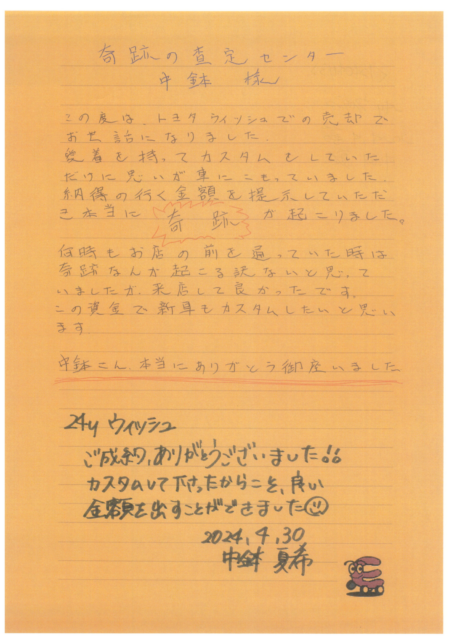 奇跡の査定センター
中鉢 様
この度は、トヨタウィッシュでの売却で
お世話になりました。
愛着を持ってカスタムもしていた
だけに思いが車にこもっていました。
納得の行く金額を提示していただ
き本当に 奇跡 が起こりました。
何時もお店の前を通っていた時は
奇跡なんか起こる訳ないと思って
いましたが、来店して良かったです。
この資金で新車もカスタムしたいと思い
ます
中鉢さん、本当にありがとう御座いました
24y ウィッシュ
ご成約、ありがとうございました!!
カスタムして下さったからこそ、良い
金額を出すことができました
2024.4.30
中鉢 夏希